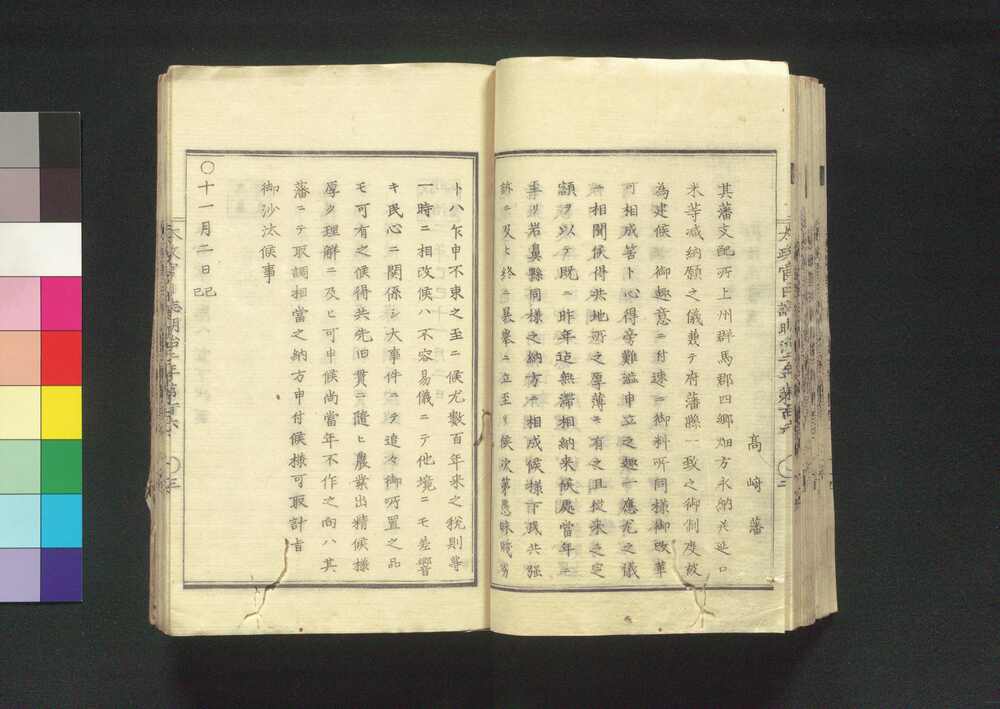 高崎藩
其藩支配所上州群馬郡四郷畑方永納并延口
米等減納願之儀兼テ府藩縣一致之御制度被
為建候御趣意ニ付速ニ御料所同様御改革
可相成筈ト心得旁難澁申立之趣一應尤之儀
相聞候得共地所之厚薄モ有之且從来之定
額ヲ以テ既ニ昨年迠無滞相納来候處當年ニ
至リ岩鼻縣同様之納方ニ相成候様下残共強
訴ニ及ヒ終ニ暴擧ニ立至リ候次第愚昧賤劣
ト八乍申不束之至ニ候尤数百年来之税則等
一時ニ相改候ハ不容易儀ニテ他境ニモ差響
キ民心ニ関係シ大事件ニテ追々御所置之品
モ可有之候得共先旧貫ニ隨ヒ農業出精候様
厚ク理解ニ及ヒ可申候尚當年不作之向ハ其
藩ニテ取調相當之納方申付候様可取計旨
御沙汰候事
〇十一月二日己巳